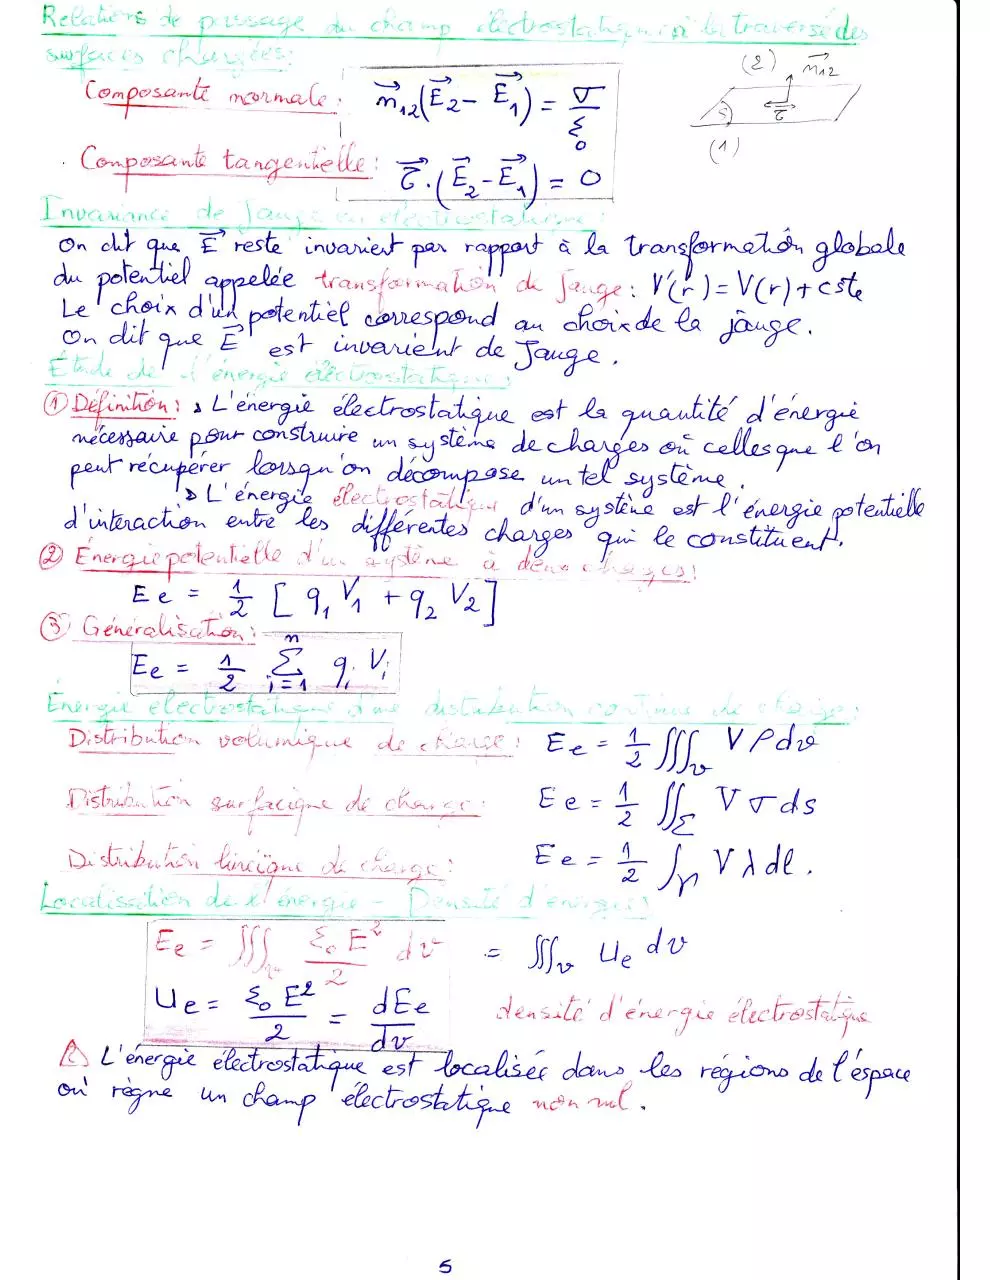 Relations de passage du champ électrostatique à la traversée des
surfaces chargées:
(2) n⃗12
Composante normale: n⃗12(E⃗2 - E⃗1) = σ/ε0
S τ⃗
(1)
Composante tangentielle: τ⃗.(E⃗2 - E⃗1) = 0
Invariance de jauge en électrostatique:
On dit que E⃗ reste invarient par rapport à la transformation globale
du potentiel appelée transformation de jauge: V'(r) = V(r) + cste
Le choix d'un potentiel correspond au choix de la jauge.
On dit que E⃗ est invarient de Jauge.
Étude de l'énergie électrostatique:
① Définition: ↳ L'énergie électrostatique est la quantité d'énergie
nécessaire pour construire un système de charges où celles que l'on
peut récupérer lorsqu'on décompose un tel système.
↳ L'énergie électrostatique d'un système est l'énergie potentielle
d'interaction entre les différentes charges qui le constituent.
② Énergie potentielle d'un système à deux charges:
Ee = 1/2 [q1 V1 + q2 V2]
③ Généralisation:
Ee = 1/2 Σ(i=1 → n) qi Vi
Énergie électrostatique d'une distribution continue de charge:
Distribution volumique de charge: Ee = 1/2 ∭v V ρ dv
Distribution surfacique de charge: Ee = 1/2 ∬Σ V σ ds
Distribution linéique de charge: Ee = 1/2 ∫Γ V λ dl.
Localisation de l'énergie - Densité d'énergie:
Ee = ∭v ε0 E²/2 dv = ∭v Ue dv
Ue = ε0 E²/2 = dEe/dv densité d'énergie électrostatique
L'énergie électrostatique est localisée dans les régions de l'espace
où règne un champ électrostatique non nul.
5